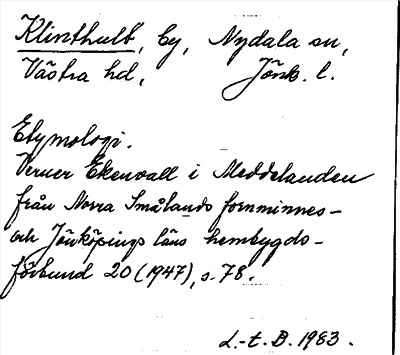 Klinthult, by, Nydala sn,
Västra hd, Jönk. l.
Etymologi.
Verner Ekenvall i Meddelanden
från Norra Smålands fornminnes-
och Jönköpings läns hembygds-
förbund 20 (1947), s. 78.
L.-t. B. 1983.